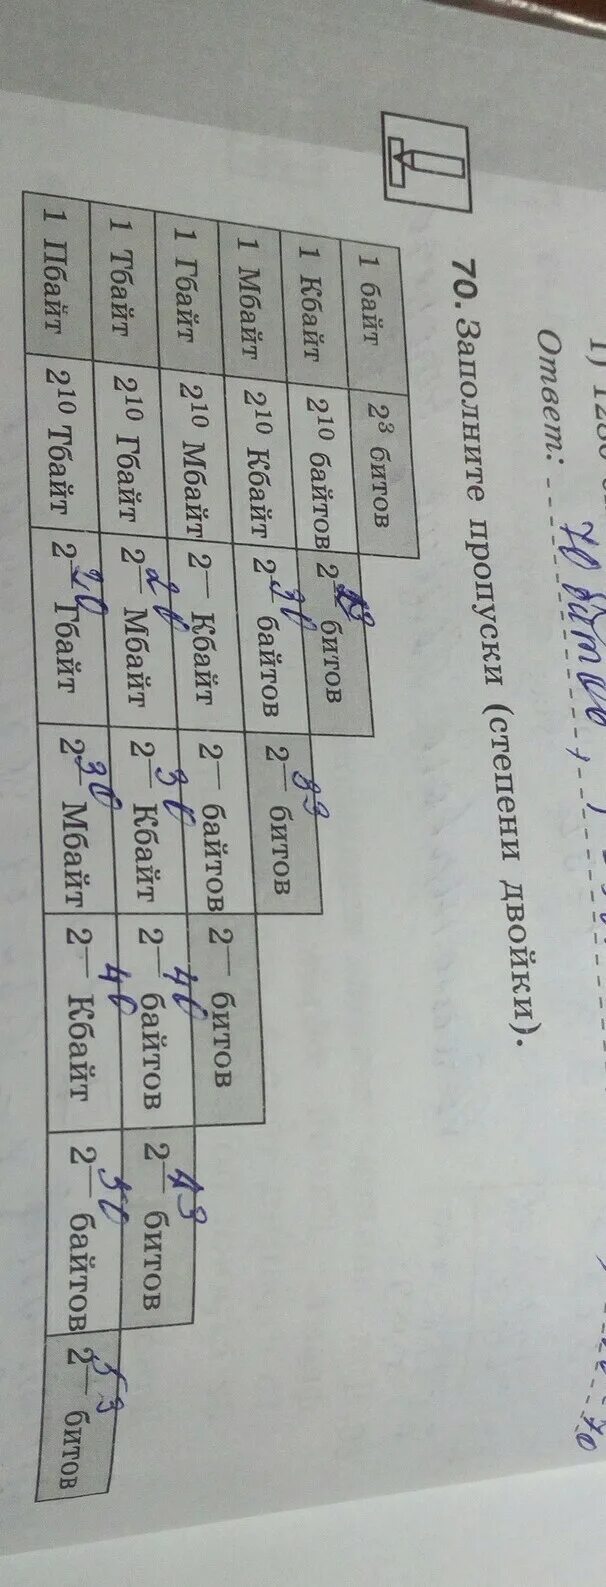 1) 1280
Ответ: 70 битов,
70
70. Заполните пропуски (степени двойки).
1 байт 2³ битов
1 Кбайт 2¹⁰ байтов 2¹³ битов
1 Мбайт 2¹⁰ Кбайт 2³⁰ байтов 2³³ битов
1 Гбайт 2¹⁰ Мбайт 2— Кбайт 2— байтов 2— битов
1 Тбайт 2¹⁰ Гбайт 2²⁰ Мбайт 2³⁰ Кбайт 2⁴⁰ байтов 2⁴³ битов
1 Пбайт 2¹⁰ Тбайт 2²⁰ Гбайт 2³⁰ Мбайт 2⁴⁰ Кбайт 2⁵⁰ байтов 2⁵³ битов